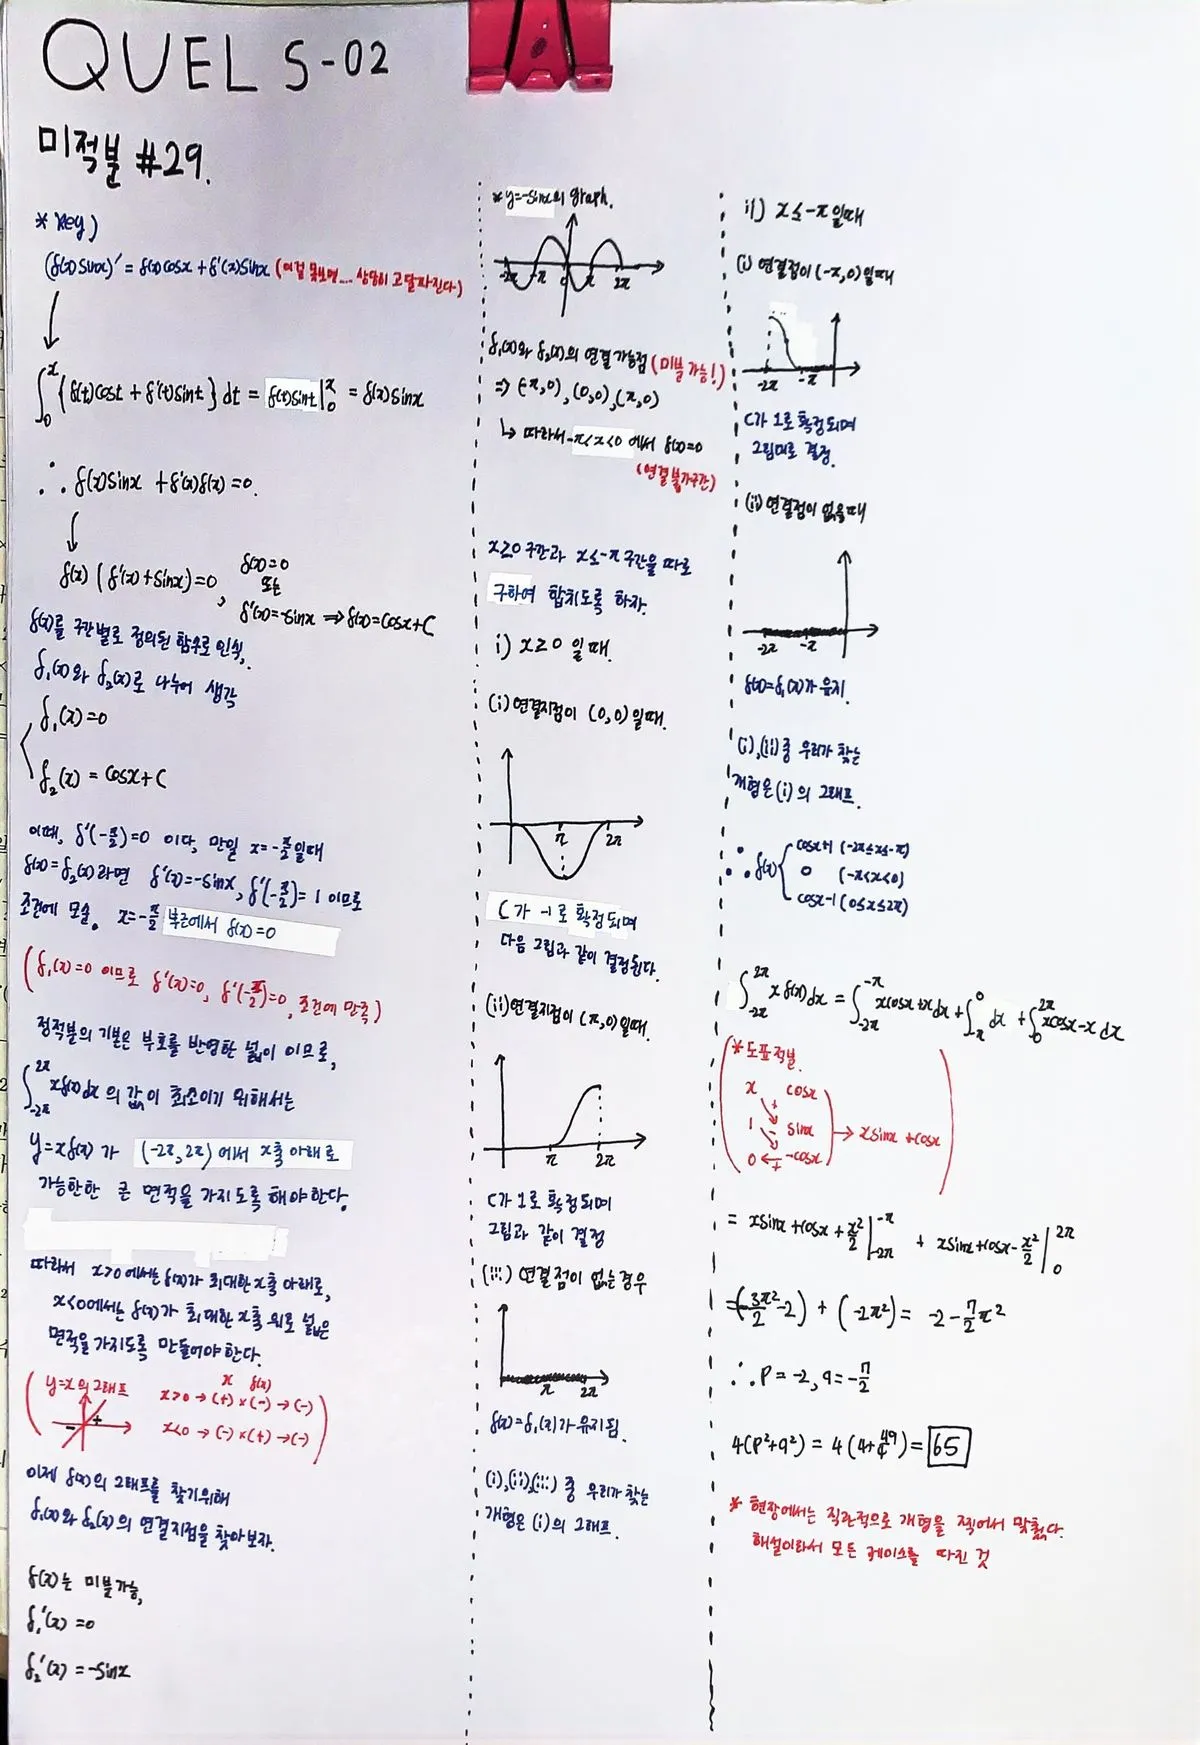 QUEL S-02
미적분 #29.
* key)
(f(x)sinx)' = f(x)cosx + f'(x)sinx (이걸 못보면.... 상당히 고달파진다)
∫₀ˣ {f(t)cost + f'(t)sint} dt = f(t)sint |₀ˣ = f(x)sinx
∴ f(x)sinx + f'(x)f(x) = 0.
f(x) (f'(x)+sinx) = 0, f(x)=0
또는
f'(x)=-sinx ⇒ f(x)=cosx+C
f(x)를 구간별로 정의된 함수로 인식,
f₁(x)와 f₂(x)로 나누어 생각
f₁(x)=0
f₂(x) = cosx+C
이때, f'(-π/2)=0 이다, 만일 x=-π/2일때
f(x)=f₂(x)라면 f'(x)=-sinx, f'(-π/2)=1 이므로
조건에 모순. x=-π/2 부근에서 f(x)=0
(f₁(x)=0 이므로 f'(x)=0, f'(-π/2)=0, 조건에 만족)
정적분의 기본은 부호를 반영한 넓이 이므로,
∫₋₂π^2π xf(x)dx 의 값이 최소이기 위해서는
y=xf(x) 가 (-2π, 2π) 에서 x축 아래로
가능한한 큰 면적을 가지도록 해야한다.
따라서 x>0에서는 f(x)가 최대한 x축 아래로,
x<0에서는 f(x)가 최대한 x축 위로 넓은
면적을 가지도록 만들어야 한다.
y=x의 그래프
x f(x)
x>0 → (+) × (-) → (-)
x<0 → (-) × (+) → (-)
- +
이제 f(x)의 그래프를 찾기위해
f₁(x)와 f₂(x)의 연결지점을 찾아보자.
f(x)는 미분가능,
f₁'(x) = 0
f₂'(x) = -sinx
* y=-sinx의 graph.
-2π -π 0 π 2π
f₁(x)와 f₂(x)의 연결 가능점 (미분 가능!)
⇒ (-π,0), (0,0), (π,0)
↳ 따라서 -π<x<0 에서 f(x)=0
(연결불가구간)
x≥0 구간과 x≤-π 구간을 따로
구하여 합치도록 하자.
i) x≥0 일때.
(i) 연결지점이 (0,0)일때.
π 2π
C가 -1로 확정되며
다음 그림과 같이 결정된다.
(ii) 연결지점이 (π,0)일때.
π 2π
C가 1로 확정되며
그림과 같이 결정
(iii) 연결점이 없는경우
π 2π
f(x)=f₁(x)가 유지됨.
(i),(ii),(iii) 중 우리가 찾는
개형은 (i)의 그래프.
ii) x≤-π일때
(i) 연결점이 (-π,0)일때
-2π -π
C가 1로 확정되며
그림대로 결정.
(ii) 연결점이 없을때
-2π -π
f(x)=f₁(x)가 유지.
(i),(ii)중 우리가 찾는
개형은 (i)의 그래프.
∴ f(x) { cosx+1 (-2π≤x≤-π)
0 (-π<x<0)
cosx-1 (0≤x≤2π)
∫₋₂π^2π xf(x)dx = ∫₋₂π^-π xcosx+x dx + ∫₋π^0 dx + ∫₀^2π xcosx-x dx
* 도표적분.
x cosx
+
1 sinx
-
0 ← -cosx
+
→ xsinx+cosx
= xsinx+cosx+x²/2 |₋₂π^-π + xsinx+cosx-x²/2 |₀^2π
=(-3π²/2-2) + (-2π²) = -2-7/2π²
∴ P=-2, q=-7/2
4(p²+q²) = 4(4+49/4) = 65
* 현장에서는 직관적으로 개형을 찍어서 맞췄다.
해설이라서 모든 케이스를 따진 것